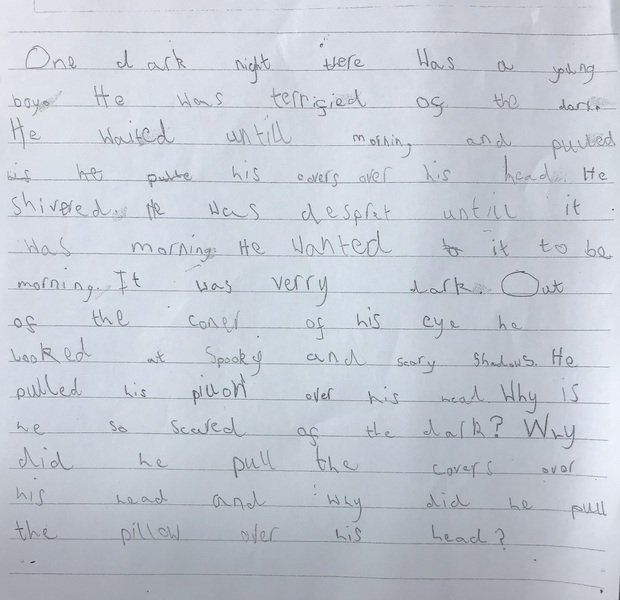 One dark night there was a young
boy. He was terrigied og the dark.
He waited untill morning and pulled
his he pulle his covers over his head. He
shivered. He was despret untill it
was morning. He wanted to it to be
morning. It was verry dark. Out
of the coner of his eye he
looked at spooky and scary shadows. He
pulled his pillow over his head. Why is
he so scared of the dark? Why
did he pull the covers over
his head and why did he pull
the pillow over his head?